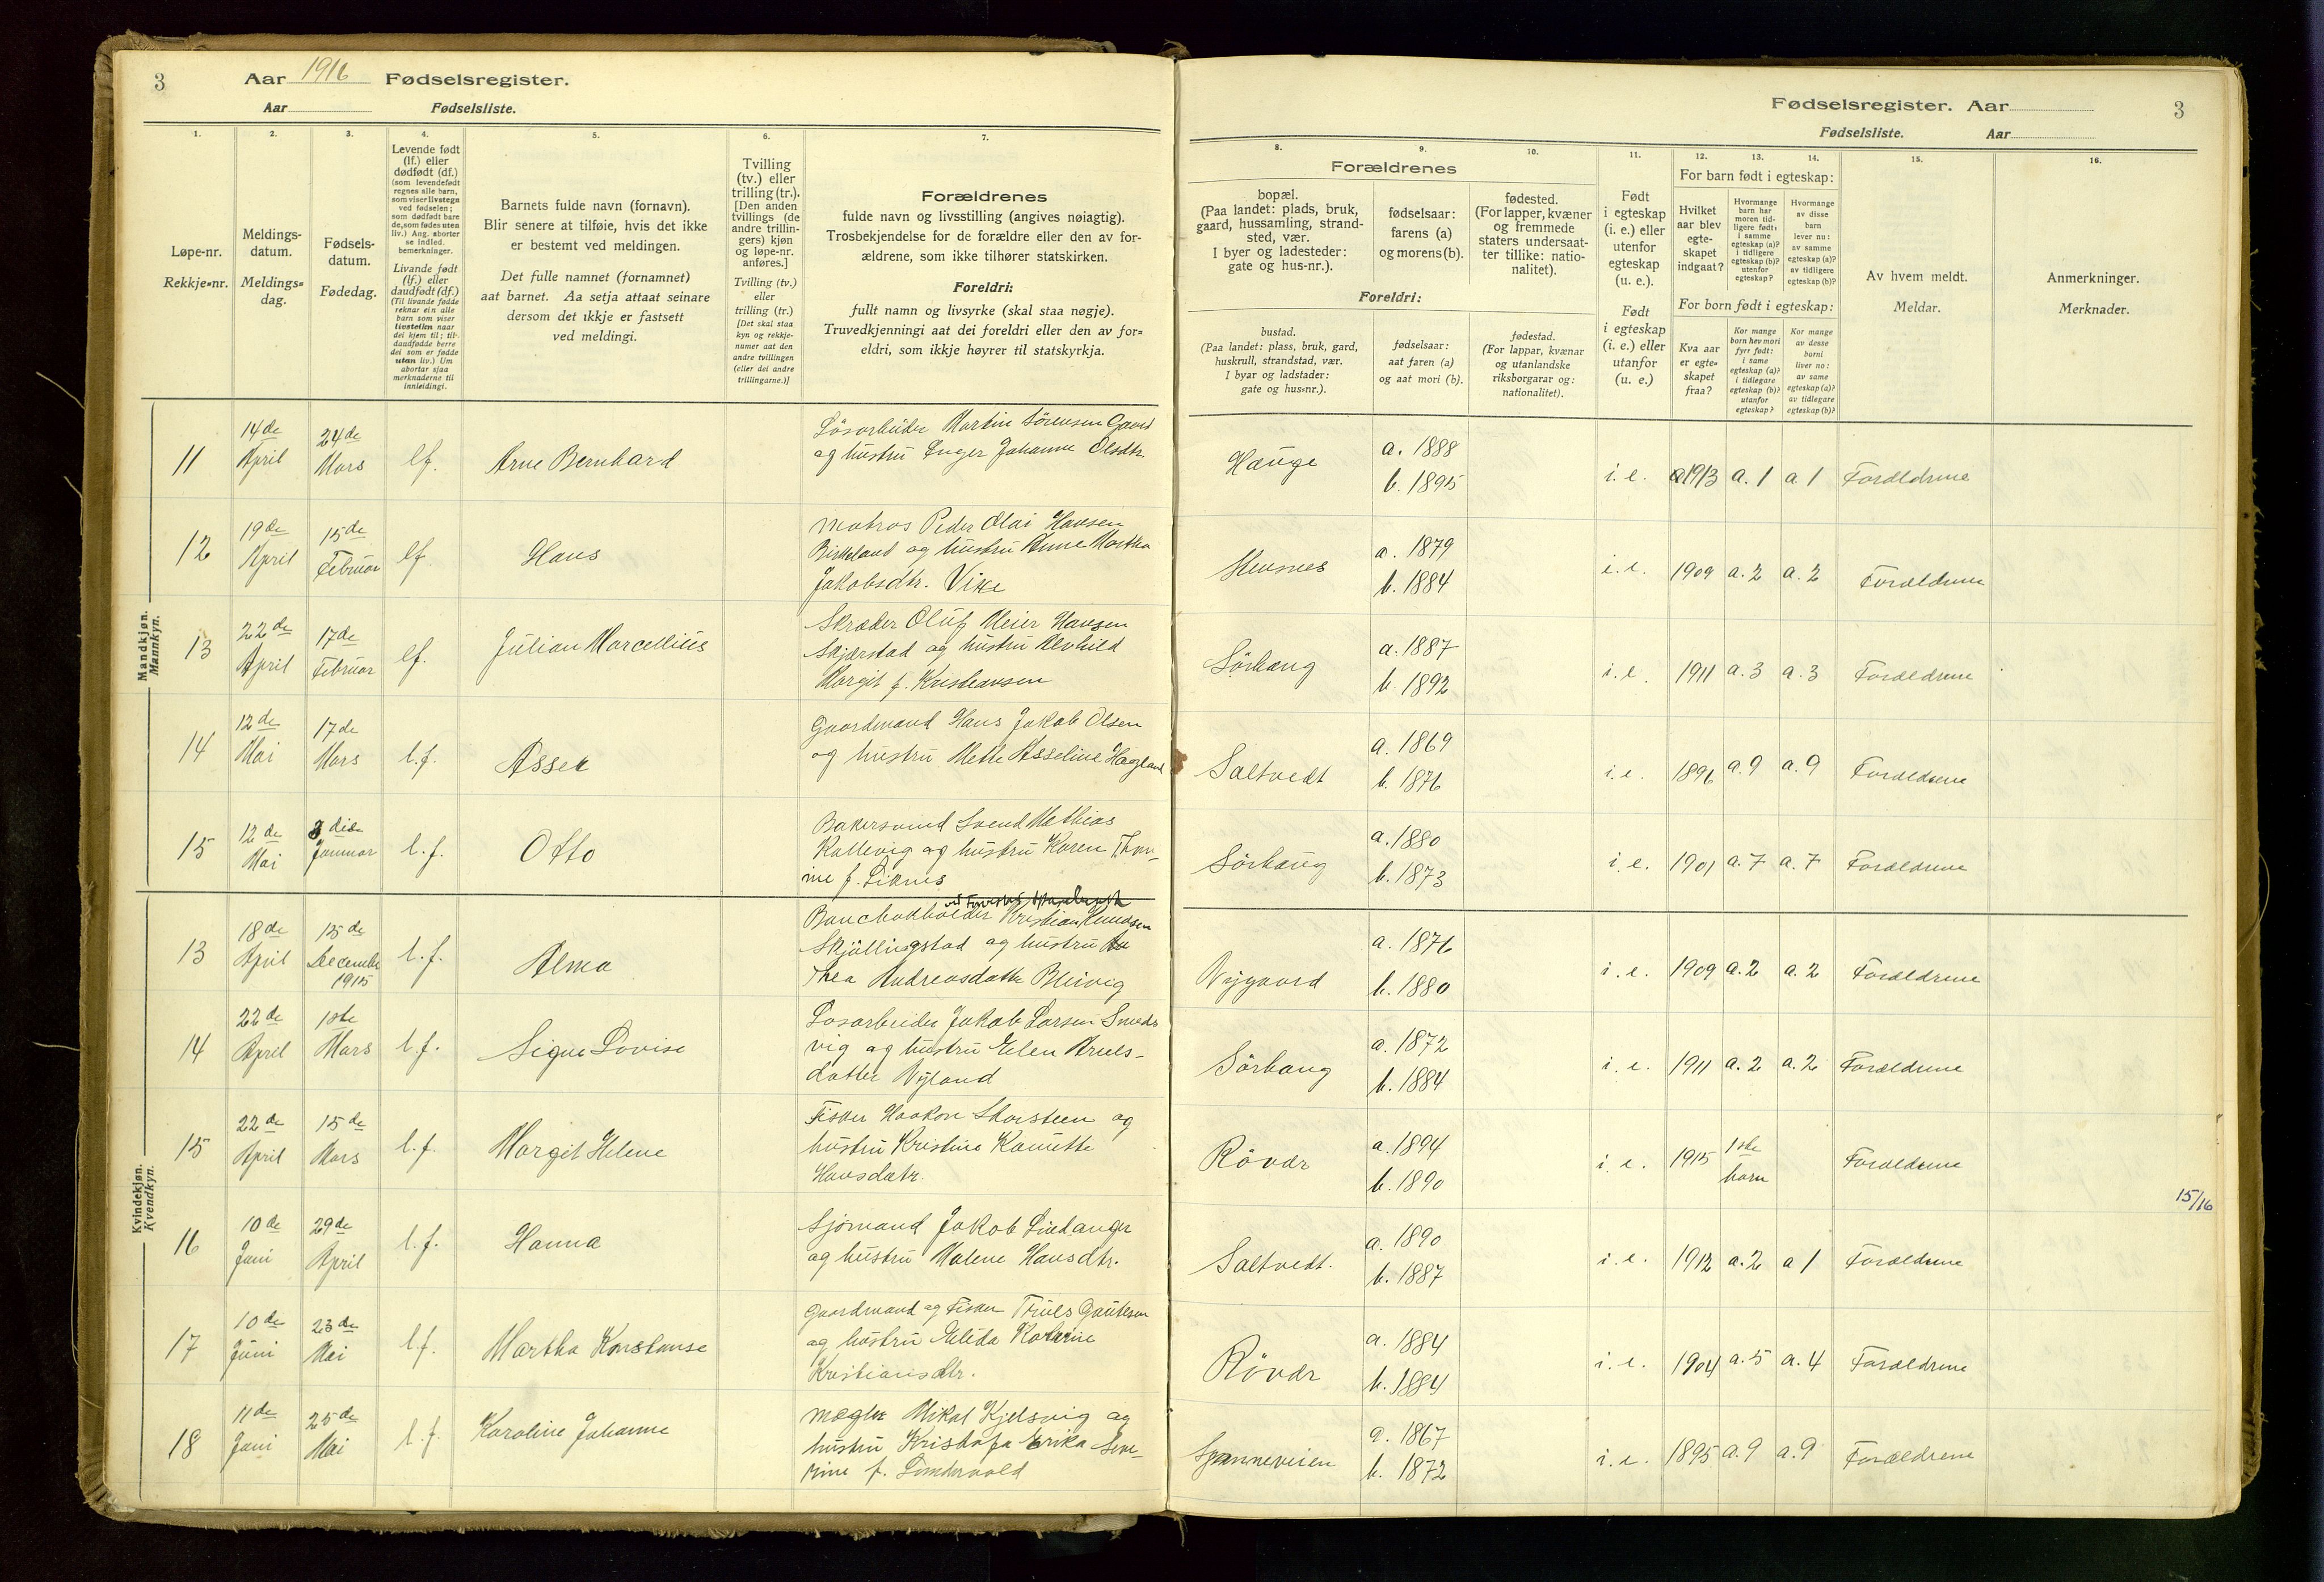 3
Aar 1916 Fødselsregister.
Aar Fødselsliste.
1.
2.
3.
4.
5.
6.
7.
Løpe-nr.
Rekkje=nr.
Meldings-
datum.
Meldings=
dag.
Fødsels-
datum.
Fødedag.
Levende født
(lf.) eller
dødfødt (df.)
(som levendefødt
regnes alle barn,
som viser livstegn
ved fødselen;
som dødfødt bare
de, som fødes uten
liv.) Ang. aborter
se indled.
bemerkninger.
Livande født
(lf.) eller
daudfødt (df.)
(Til livande fødde
reknar ein alle
barn som viser
livsteikn naar
dei kjem til; til-
daudfødde berre
dei som er fødde
utan liv.) Um
abortar sjaa
merknaderne til
innleidingi.
Barnets fulde navn (fornavn).
Blir senere at tilføie, hvis det ikke
er bestemt ved meldingen.
Det fulle namnet (fornamnet)
aat barnet. Aa setja attaat seinare
dersom det ikkje er fastsett
ved meldingi.
Tvilling
(tv.) eller
trilling (tr.).
[Den anden
tvillings (de
andre trillin-
gers) kjøn
og løpe-nr.
anføres.]
Tvilling (tv.)
eller
trilling (tr.)
[Det skal staa
kyn og rekkje-
numer aat den
andre tvillingen
(eller dei andre
trillingarne.)]
Forældrenes
fulde navn og livsstilling (angives nøiagtig).
Trosbekjendelse for de forældre eller den av for-
ældrene, som ikke tilhører statskirken.
Foreldri:
fullt namn og livsyrke (skal staa nøgje).
Truvedkjenningi aat dei foreldri eller den av for=
eldri, som ikkje høyrer til statskyrkja.
Fødselsregister. Aar 3
Fødselsliste. Aar
8.
9.
10.
11.
12.
13.
14.
15.
16.
Forældrenes
bopæl.
(Paa landet: plads, bruk,
gaard, hussamling, strand-
sted, vær.
I byer og ladesteder:
gate og hus-nr.).
fødselsaar:
farens (a)
og morens (b).
fødested.
(For lapper, kvæner
og fremmede
staters undersaat-
ter tillike: natio-
nalitet).
Foreldri:
bustad.
(Paa landet: plass, bruk, gard,
huskrull, strandstad, vær.
I byar og ladstader:
gate og hus=nr.).
fødselsaar:
aat faren (a)
og aat mori (b).
fødestad.
(For lappar, kvænar
og utanlandske
riksborgarar og:
nationalitet).
Født
i egteskap
(i. e.) eller
utenfor
egteskap
(u. e.).
Født
i egteskap
(i. e.) eller
utanfor
(u. e.)
For barn født i egteskap:
Hvilket
aar blev
egte-
skapet
indgaat?
Hvormange
barn har
moren tid-
ligere født:
i samme
egteskap (a)?
i tidligere
egteskap (b)?
utenfor
egteskap?
Hvormange
av disse
barn
lever nu:
av samme
egteskap (a)?
av tidligere
egteskap (b)?
For born født i egteskap:
Kva aar
er egte-
skapet
fraa?
Kor mange
born hev mori
fyrr født:
i same
egteskap (a)?
i tidlegare
egteskap (b)?
utanfor
egteskap?
Kor mange
av desse
borni
liver no:
av same
egteskap (a)?
av tidlegare
egteskap (b)?
Av hvem meldt.
Meldar.
Anmerkninger.
Merknader.
Mandkjøn.
Mannkyn.
11 14de April 24de Mars lf. Arne Bernhard
Løsarbeider Martin Sørensen Gaard
og hustru Inger Johanne Olsdtr.
Hauge a. 1888 b. 1895 i. e. 1913 a. 1 a. 1 Forældrene
12 19de April 15de Februar lf. Hans
Matros Peder Olai Hansen
Birkeland og hustru Anne Martha
Jakobsdtr. Vike
a. 1879 b. 1884 i. e. 1909 a. 2 a. 2 Forældrene
13 22de April 17de Februar lf. Julian Marcellius
Skræder Oluf Meier Hansen
Skjærstad og hustru Alvhild
Margit f. Kristiansen
Sørhaug a. 1887 b. 1892 i. e. 1911 a. 3 a. 3 Forældrene
14 12de Mai 17de Mars l. f. Asser
Gaardmand Hans Jakob Olsen
og hustru Mette Asseline Hagland
Saltvedt a. 1869 b. 1876 i. e. 1896 a. 9 a. 9 Forældrene
15 12de Mai 3die Januar l. f. Otto
Bakersvend Svend Mathias
Kallevig og hustru Karen
f. Liknes
Sørhaug a. 1880 b. 1873 i. e. 1901 a. 7 a. 7 Forældrene
Kvindekjøn.
Kvendkyn.
13 18de April 15de December 1915 l. f. Alma
Kristian Knudsen
Skjøllingstad og hustru
Thea Andreasdatter Bleivig
Nygaard a. 1876 b. 1880 i. e. 1909 a. 2 a. 2 Forældrene
14 22de April 1ste Mars l. f. Signe Lovise
Løsarbeider Jakob Larsen Smeds
vig og hustru Elen
datter Nyland
Sørhaug a. 1872 b. 1884 i. e. 1911 a. 2 a. 2 Forældrene
15 22de April 15de Mars l. f. Margit Helene
Fisker Haakon Skorsteen og
hustru Kristine Kanutte
Hansdatr.
Røvær a. 1894 b. 1890 i. e. 1915 1ste barn Forældrene
15/16
16 10de Juni 29de April l. f. Hanna
Sjømand Jakob Lindanger
og hustru Malene Hansdtr.
Saltvedt. a. 1890 b. 1887 i. e. 1912 a. 2 a 1 Forældrene
17 10de Juni 23de Mai l. f. Martha Konstanse
Gaardmand og Fisker Truls Gautesen
og hustru Elida Katarine
Kristiansdtr.
Røvær a. 1884 b. 1884 i. e. 1904 a. 5 a. 4 Forældrene
18 11de Juni 25de Mai l. f. Karoline Johanne
Mægler Mikal Kjelsvig og
hustru Kristofa Erika Seve-
rine f.
Spanneveien a. 1867 b. 1872 i. e. 1895 a. 9 a. 9 Forældrene